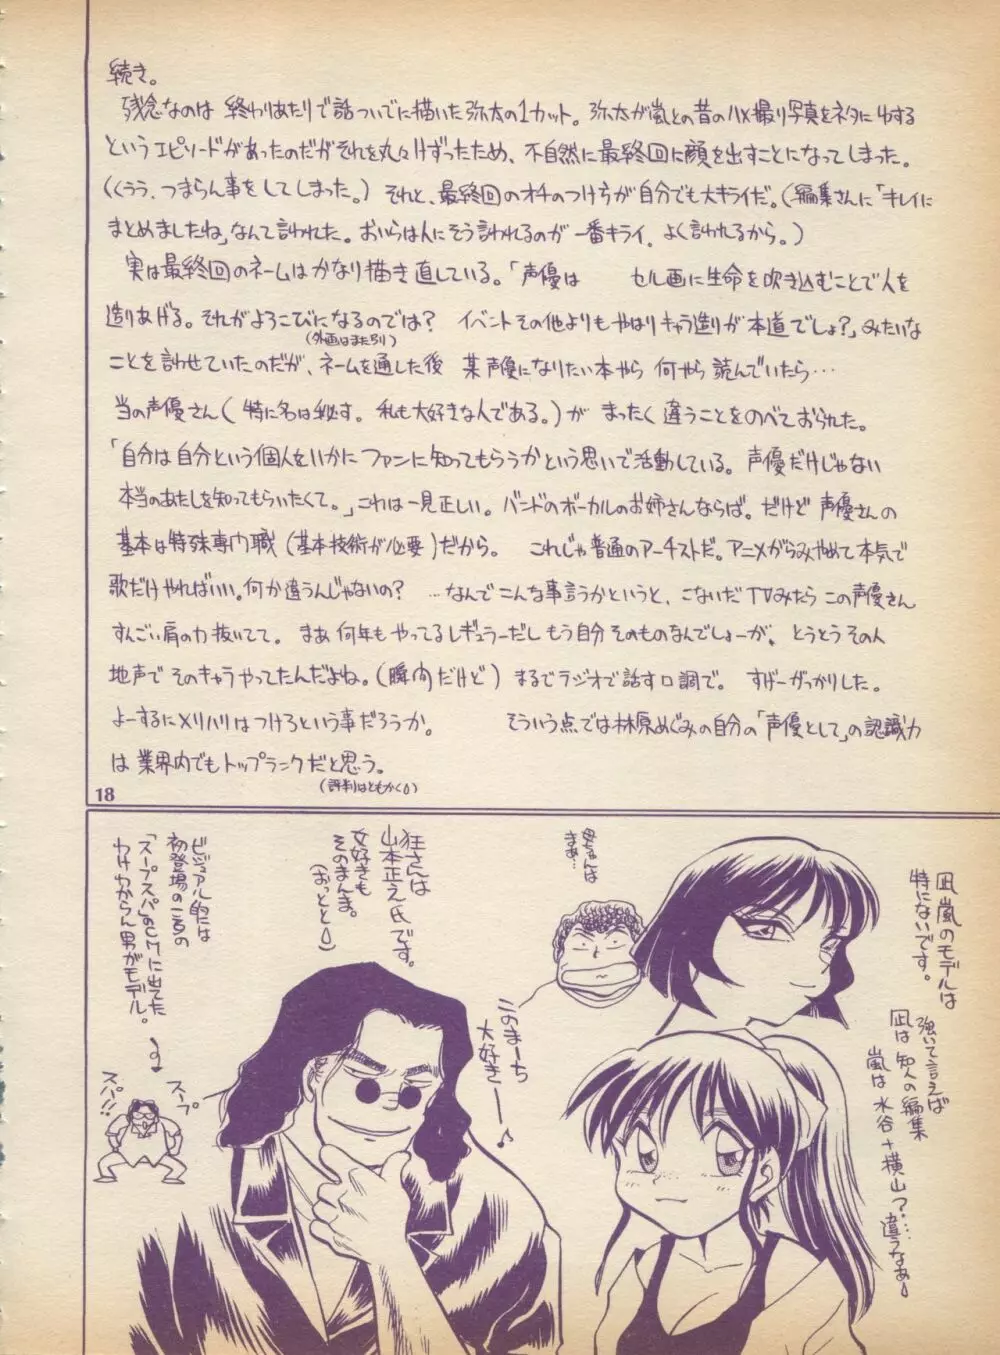 続き。
残念なのは 終わりあたりで話ついでに描いた弥太の1カット。弥太が嵐との昔のハメ撮り写真をネタにゆする
というエピソードがあったのだがそれを丸々けずったため、不自然に最終回に顔を出すことになってしまった。
(くうう、つまらん事をしてしまった。) それと、最終回のオチのつけ方が自分でも大キライだ。(編集さんに「キレイに
まとめましたね」なんて言われた。おいらは人にそう言われるのが一番キライ。よく言われるから。)
実は最終回のネームはかなり描き直している。「声優は セル画に生命を吹き込むことで人を
造りあげる。それがよろこびになるのでは? イベントその他よりもやはりキャラ造りが本道でしょ?」みたいな
(外画はまた別り)
ことを言わせていたのだが、ネームを通した後 某声優になりたい本やら 何やら 読んでいたら…
当の声優さん(特に名は秘す。私も大好きな人である。)が まったく違うことをのべておられた。
「自分は自分という個人をいかに ファンに知ってもらうかという思いで活動している。声優だけじゃない
本当のあたしを知ってもらいたくて。」これは一見正しい。バンドのボーカルのお姉さんならば。だけど 声優さんの
基本は特殊専門職(基本技術が必要)だから。 これじゃ普通のアーチストだ。アニメがらみやめて本気で
歌だけやればいい。何か違うんじゃないの? …なんでこんな事言うかというと、こないだTVみたら この声優さん
すんごい肩の力抜いてて。まあ 何年もやってるレギュラーだし もう自分そのものなんでしょーが、とうとうその人
地声でそのキャラやってたんだよね。(瞬間だけど) まるでラジオで話す口調で。すげーがっかりした。
よーするにメリハリはつけろという事だろうか。 そういう点では林原めぐみの自分の「声優として」の認識力
は 業界内でもトップランクだと思う。
(評判はともかく)
18
凪 嵐のモデルは
特にないです。
強いて言えば
凪は 知人の編集
嵐は 水谷+横山?…
違うなあ
母さんは
まあ…
このまーち
大好きー♪
狂さんは
山本正之氏です。
女好きも
そのまんま。
(おっとと)
ビジュアル的には
初登場の一言の
「スープスパ」のCMに出てた
わけわからん男がモデル。
スープ
スパ!!